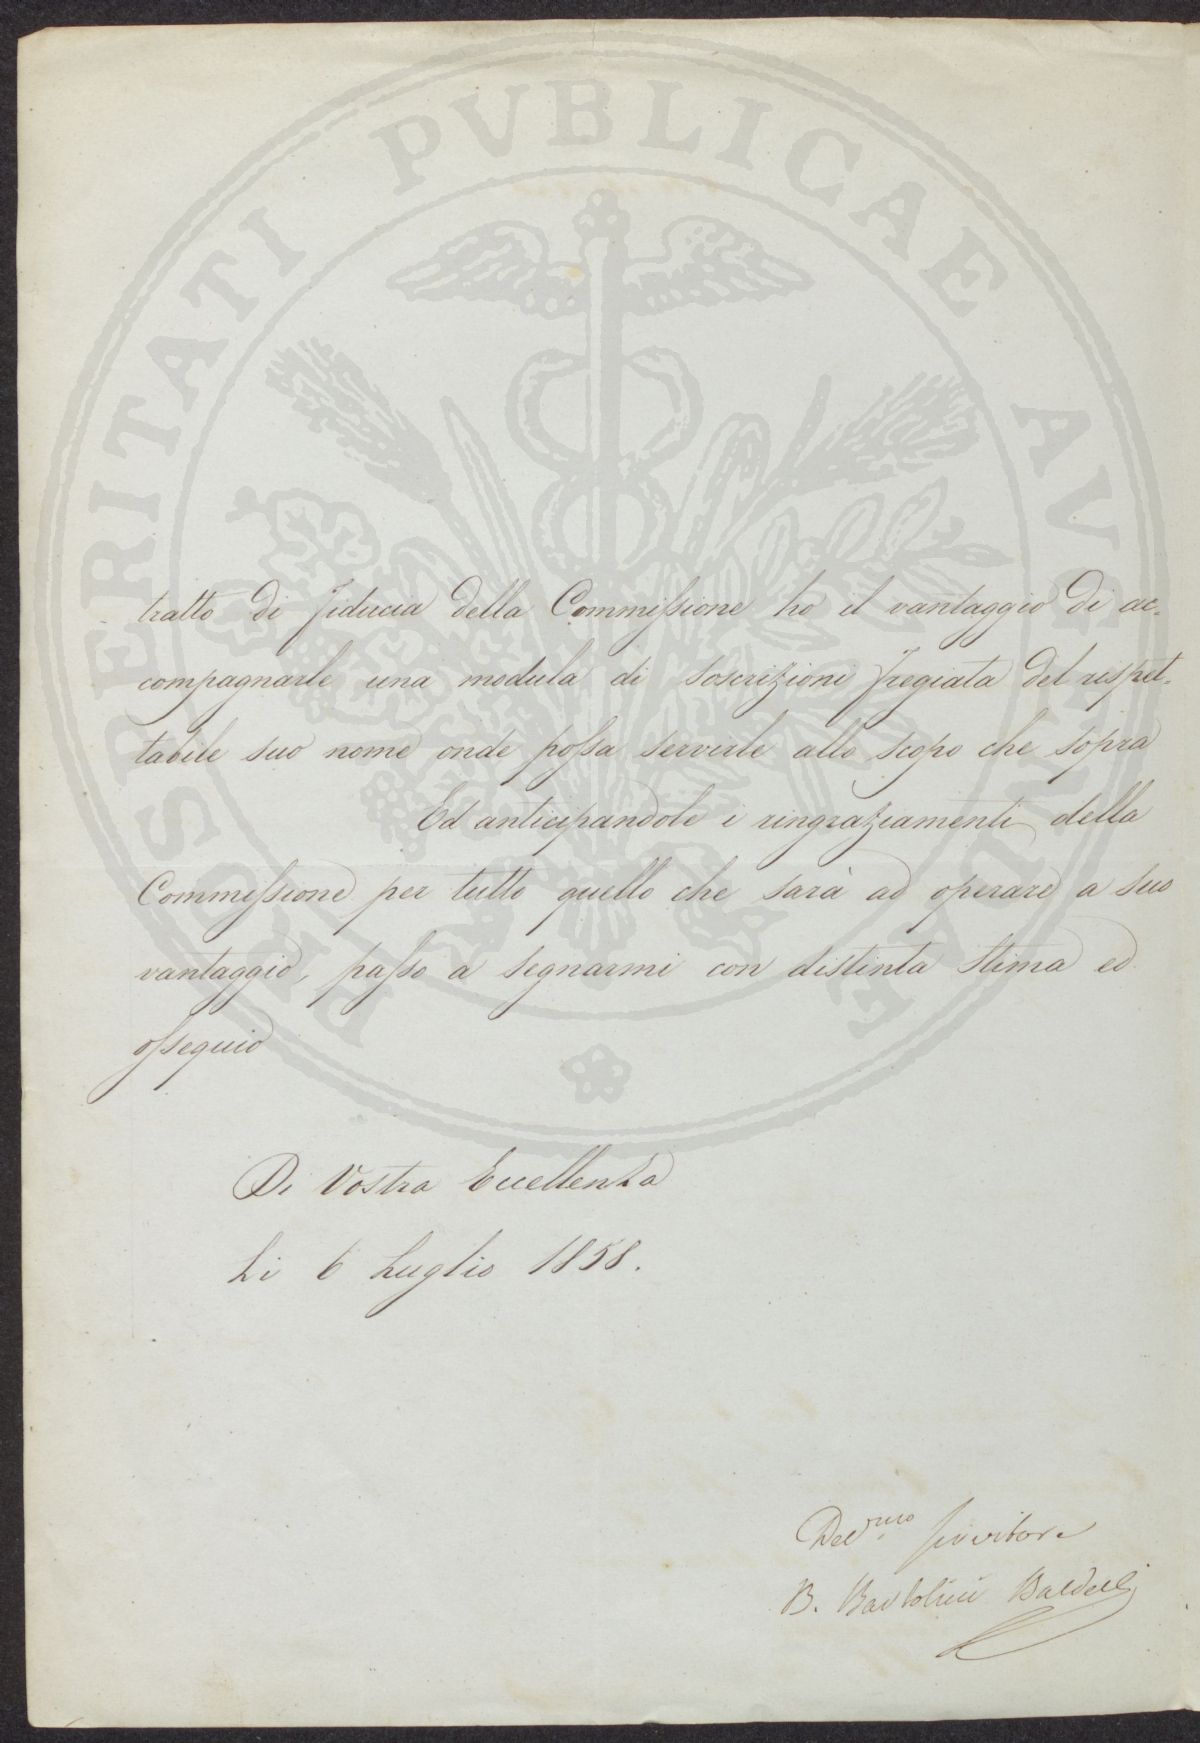 PROSPERITATI PVBLICAE AVGENDAE
tratto di fiducia della Commissione ho il vantaggio di ac=
compagnarle una modula di soscrizioni fregiata del rispet=
tabile suo nome onde possa servirle allo scopo che sopra
Ed anticipandole i ringraziamenti della
Commissione per tutto quello che sarà ad operare a suo
vantaggio, passo a segnarmi con distinta stima ed
ossequio
Di Vostra Eccellenza
Li 6 Luglio 1858.
Dev.mo servitore
B. Bartolini Baldelli